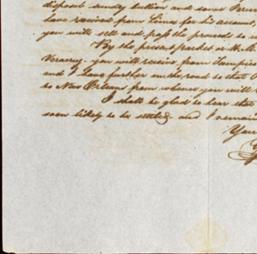 disposit sunday bullion and some
have received from Lima for his account,
you will sell and pass the proceeds to
By the present packet or
Veracruz you will receive from Tampico
and I have further on the road to that
to New Orleans from whence you will
I shall be glad to hear that
soon likely to be settled and I remain
Your